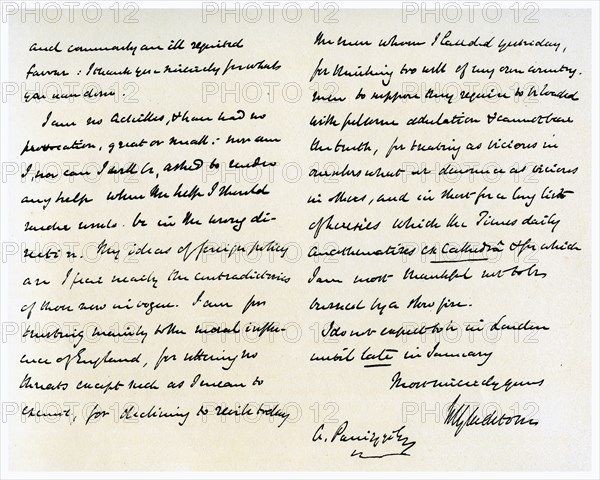 and commonly an ill requited
favour: I thank you sincerely for what
you have done.
I am no Achilles, & have had no
provocation, great or small: nor am
I, nor can I well be, asked to render
any help when the help I should
render would be in the wrong di-
rection. My ideas of foreign policy
are I fear nearly the contradictories
of those now in vogue. I am for
trusting mainly to the moral influ-
ence of England, for uttering no
threats except such as I mean to
execute, for declining to revile today
the men whom I lauded yesterday,
for thinking too well of my own country-
men to suppose they require to be loaded
with fulsome adulation & cannot bear
the truth, for treating as vicious in
ourselves what we denounce as vicious
in others, and in short for a long list
of heresies which the Times daily
anathematizes ex cathedrâ & for which
I am most thankful not to be
burned by a slow fire.
I do not expect to be in London
until late in January
Most sincerely yours
W E Gladstone
A. Panizzi Esq
PHOTO 12